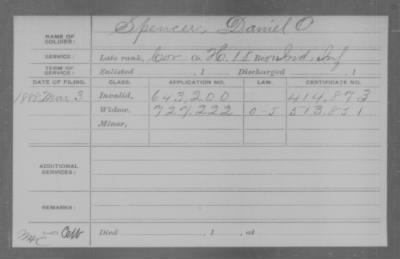 NAME OF SOLDIER: Spencer, Daniel O
SERVICE: Late rank, Cor Co. H, 18 Reg't Ind, Inf
TERM OF SERVICE: Enlisted , 1 Discharged , 1
DATE OF FILING. CLASS. APPLICATION NO. LAW. CERTIFICATE NO.
1888 Mar 3 Invalid, 643,200 414,873
Widow, 727,222 0-5 513,851
Minor,
ADDITIONAL SERVICES:
REMARKS:
Died , 1 , at